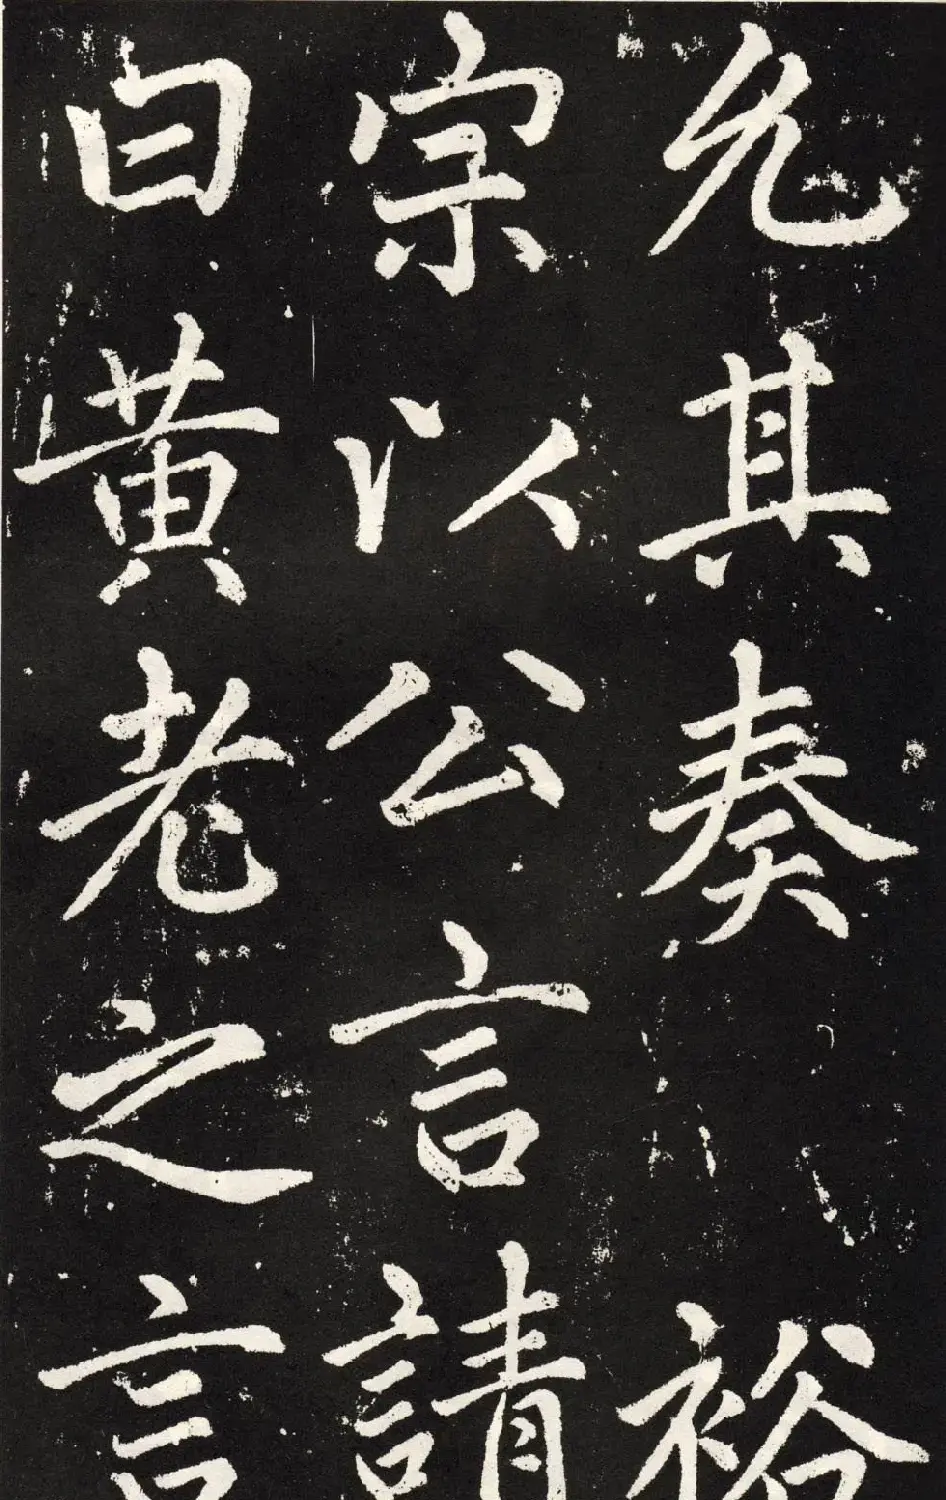 允其奏裕
宗以公言請
曰黄老之言